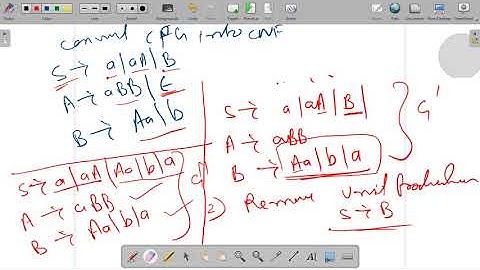 convert CFG into CNF
S → a|aA|B
A → aBB|ε
B → Aa|b
S → a|aA|Aa|b|a
A → aBB
B → Aa|b|a
S → a|aA|B|
A → aBB
B → Aa|b|a
G'
2) Remove Unit Production
S → B